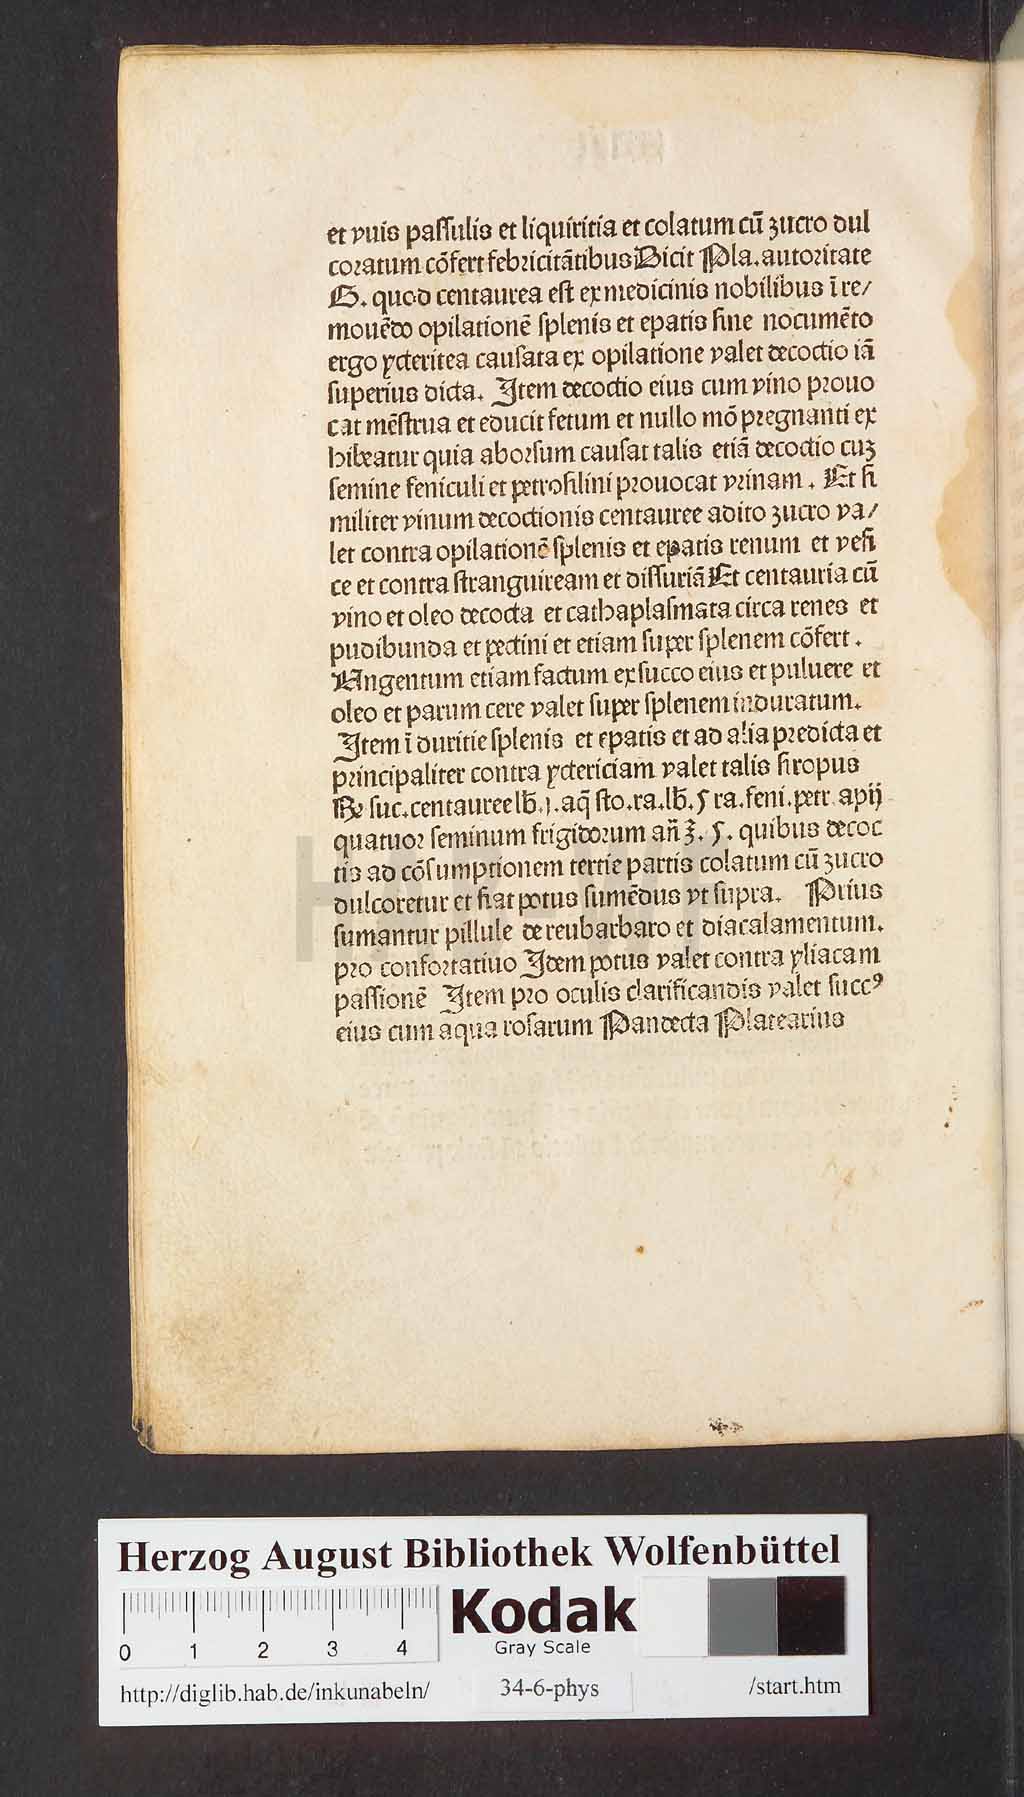 et vuis paſſulis et liquiritia et colatum cū zucro dul
coratum cōfert febricitātibus Dicit Pla. autoritate
G. quod centaurea eſt ex medicinis nobilibus ī re/
mouēdo opilationē ſplenis et epatis ſine nocumēto
ergo ycteritea cauſata ex opilatione valet decoctio iā
ſuperius dicta. Item decoctio eius cum vino prouo
cat mēſtrua et educit fetum et nullo mō pregnanti ex
hibeatur quia aborſum cauſat talis etiā decoctio cuʒ
ſemine feniculi et petroſilini prouocat vrinam. Et ſi
militer vinum decoctionis centauree adito zucro va/
let contra opilationē ſplenis et epatis renum et veſi
ce et contra ſtranguiream et diſſuriā Et centauria cū
vino et oleo decocta et cathaplaſmata circa renes et
pudibunda et pectini et etiam ſuper ſplenem cōfert.
Vngentum etiam factum ex ſucco eius et puluere et
oleo et parum cere valet ſuper ſplenem induratum.
Item ī duritie ſplenis et epatis et ad alia predicta et
principaliter contra yctericiam valet talis ſiropus
℞ ſuc. centauree lb̄. j. aq̄ ſto. ra. lb̄. ſ ra. feni. petr. apij
quatuor ſeminum frigidorum an̄ ʒ. ſ. quibus decoc
tis ad cōſumptionem tertie partis colatum cū zucro
dulcoretur et fiat potus ſumēdus vt ſupra. Prius
ſumantur pillule de reubarbaro et diacalamentum.
pro confortatiuo Idem potus valet contra yliacam
paſſionē Item pro oculis clarificandis valet ſuccꝰ
eius cum aqua roſarum Pandecta Platearius
HAB
Herzog August Bibliothek Wolfenbüttel
0 1 2 3 4
Kodak
Gray Scale
http://diglib.hab.de/inkunabeln/ 34-6-phys /start.htm